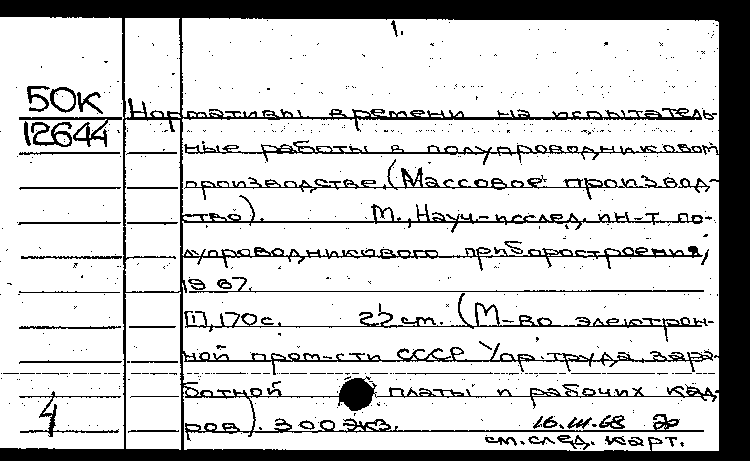 1.
50К
12644
Нормативы времени на испытатель-
ные работы в полупроводниковом
производстве. (Массовое производ-
ство). М., Науч-исслед. ин-т по-
лупроводникового приборостроения,
1967.
[1], 170 с. 29 см. (М-во электрон-
ной пром-сти СССР Упр. труда, зара-
ботной платы и рабочих кад-
ров). 300 экз. 16.III.68
см. след. карт.
4